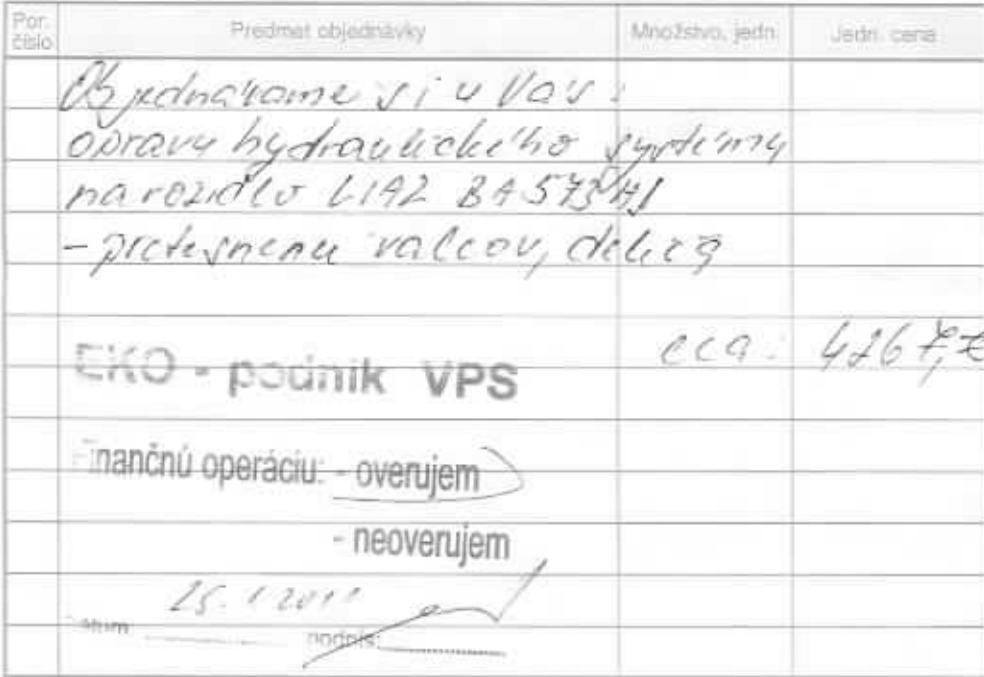 Por. číslo Predmet objednávky Množstvo, jedn. Jedn. cena
Objednávame si u Vás:
opravu hydraulického systému
na vozidlo LIAZ BA573HJ
- pretesnenie valcov,
cca.
EKO - podnik VPS
Finančnú operáciu: - overujem
- neoverujem
25.1.2011
Dátum podpis: